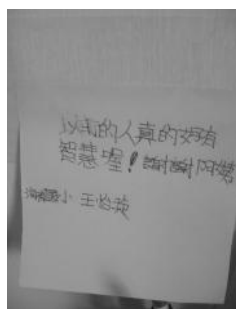 以前的人真的好有
智慧喔!謝謝阿嬤
國小 王怡